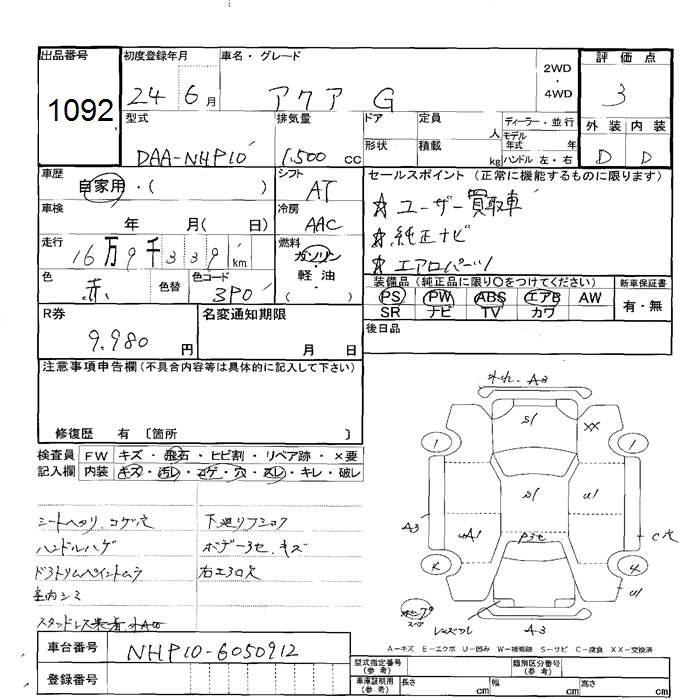 出品番号 初度登録年月 車名・グレード 評価点
1092 24 6月 アクア G 2WD・4WD 3
型式 排気量 ドア 定員 人 ディーラー・並行 外装 内装
DAA-NHP10 1,500 cc 形状 積載 kg モデル年式 年 ハンドル 左・右 D D
車歴 自家用・( ) シフト AT セールスポイント (正常に機能するものに限ります)
車検 年 月( 日) 冷房 AAC ☆ ユーザー買取車
走行 16万9千339km 燃料 ガソリン・軽油 ( ) ☆ 純正ナビ
☆ エアロパーツ
色 赤 色替 色コード 3P0 装備品 (純正品に限り○をつけてください) 新車保証書
PS PW ABS エアB AW 有・無
SR ナビ TV カワ
R券 9,980 円 名変通知期限 月 日 後日品
注意事項申告欄 (不具合内容等は具体的に記入して下さい)
修復歴 有 〔箇所 〕
検査員記入欄 FW キズ・飛石・ヒビ割・リペア跡・×要
内装 キズ・汚レ・コゲ・穴・スレ・キレ・破レ
シートヘタリ、コゲ穴 下廻りフショク
ハンドルハゲ ボデー3セ、キズ
ドアトリムペイントムラ 右エアロ欠
室内シミ
車台番号 NHP10-6050912
登録番号
外れ. A3
S1 XX
1 1
A3 S1 U1 C穴
UA1
U1
A3
A－キズ E－エクボ U－凹み W－補修跡 S－サビ C－腐食 XX－交換済
型式指定番号 (参考) 類別区分番号 (参考)
車庫証明用 (参考) 長さ cm 幅 cm 高さ cm